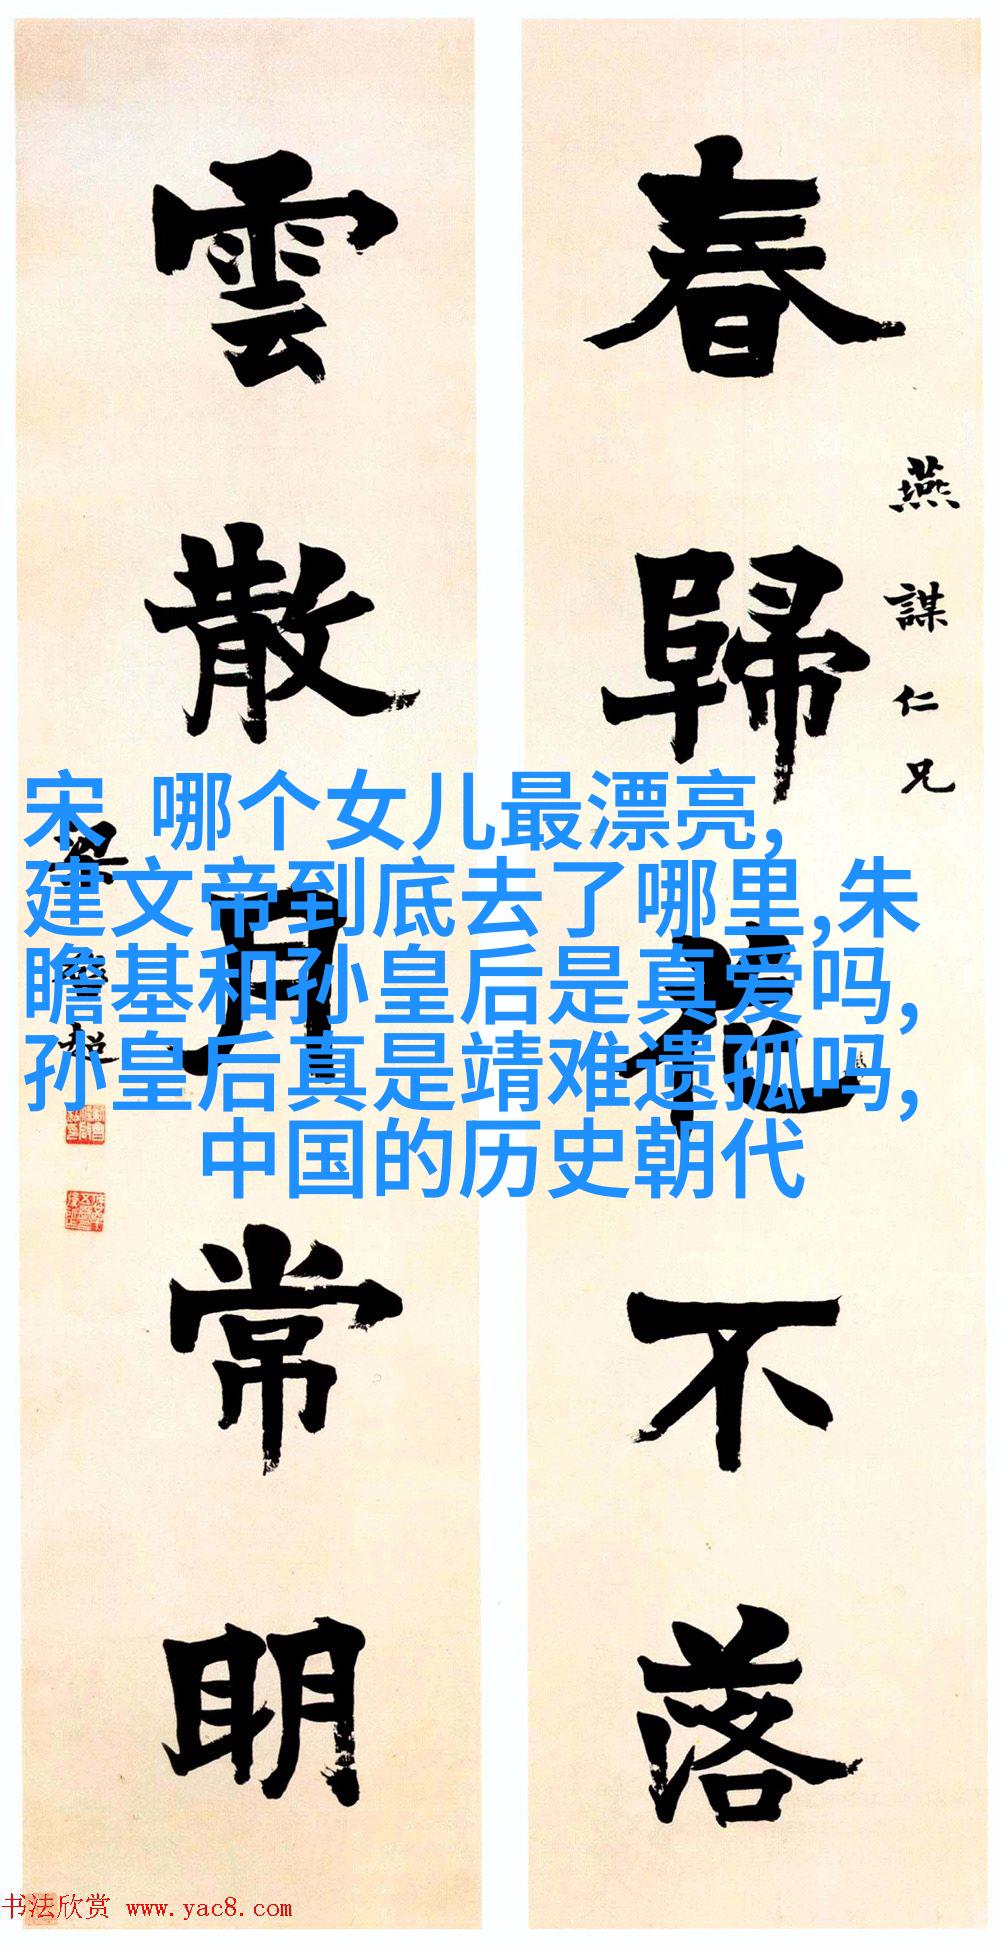 春歸花不落
燕謀仁兄
雲散月常明
梁啓超
宋 哪个女儿最漂亮,
建文帝到底去了哪里,朱
瞻基和孙皇后是真爱吗,
孙皇后真是靖难遗孤吗,
中国的历史朝代
书法欣赏 www.yac8.com